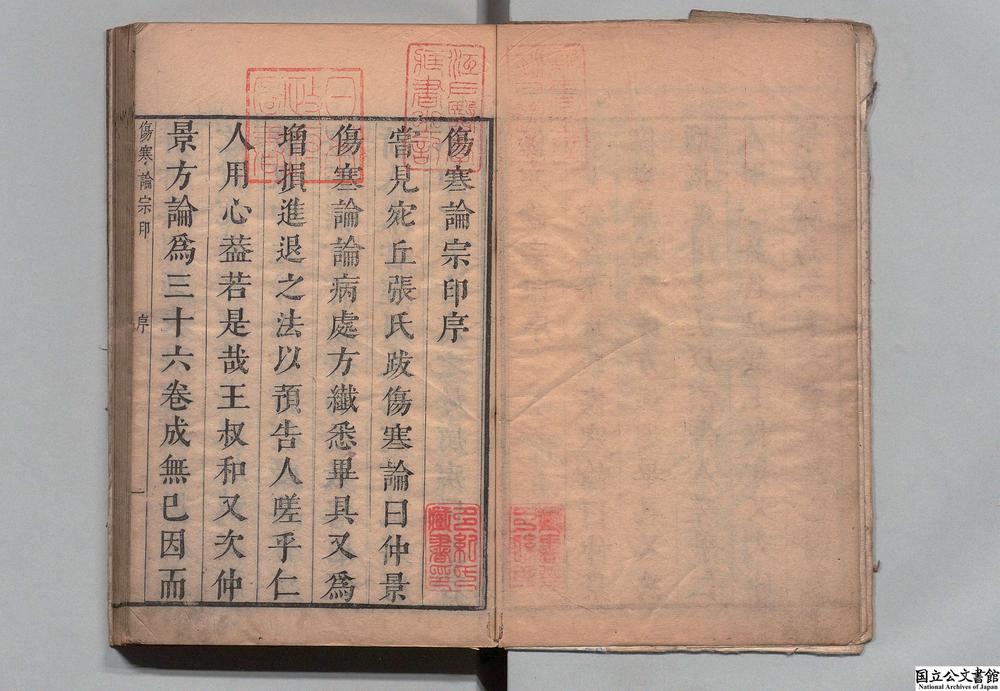 傷寒論宗印序
嘗見宛丘張氏跋傷寒論曰仲景
傷寒論論病處方纖悉畢具又爲
增損進退之法以預告人嗟乎仁
人用心葢若是哉王叔和又次仲
景方論爲三十六卷成無已因而
傷寒論宗印
序
一
日本政府圖書
江戸醫學藏書之記
國立公文書館
National Archives of Japan